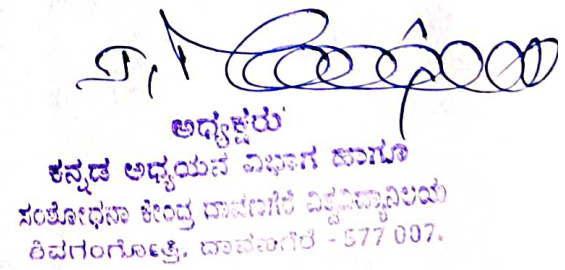 ಅಧ್ಯಕ್ಷರು
ಕನ್ನಡ ಅಧ್ಯಯನ ವಿಭಾಗ ಹಾಗೂ
ಸಂಶೋಧನಾ ಕೇಂದ್ರ ದಾವಣಗೆರೆ ವಿಶ್ವವಿದ್ಯಾನಿಲಯ
ಶಿವಗಂಗೋತ್ರಿ, ದಾವಣಗೆರೆ - 577 007.